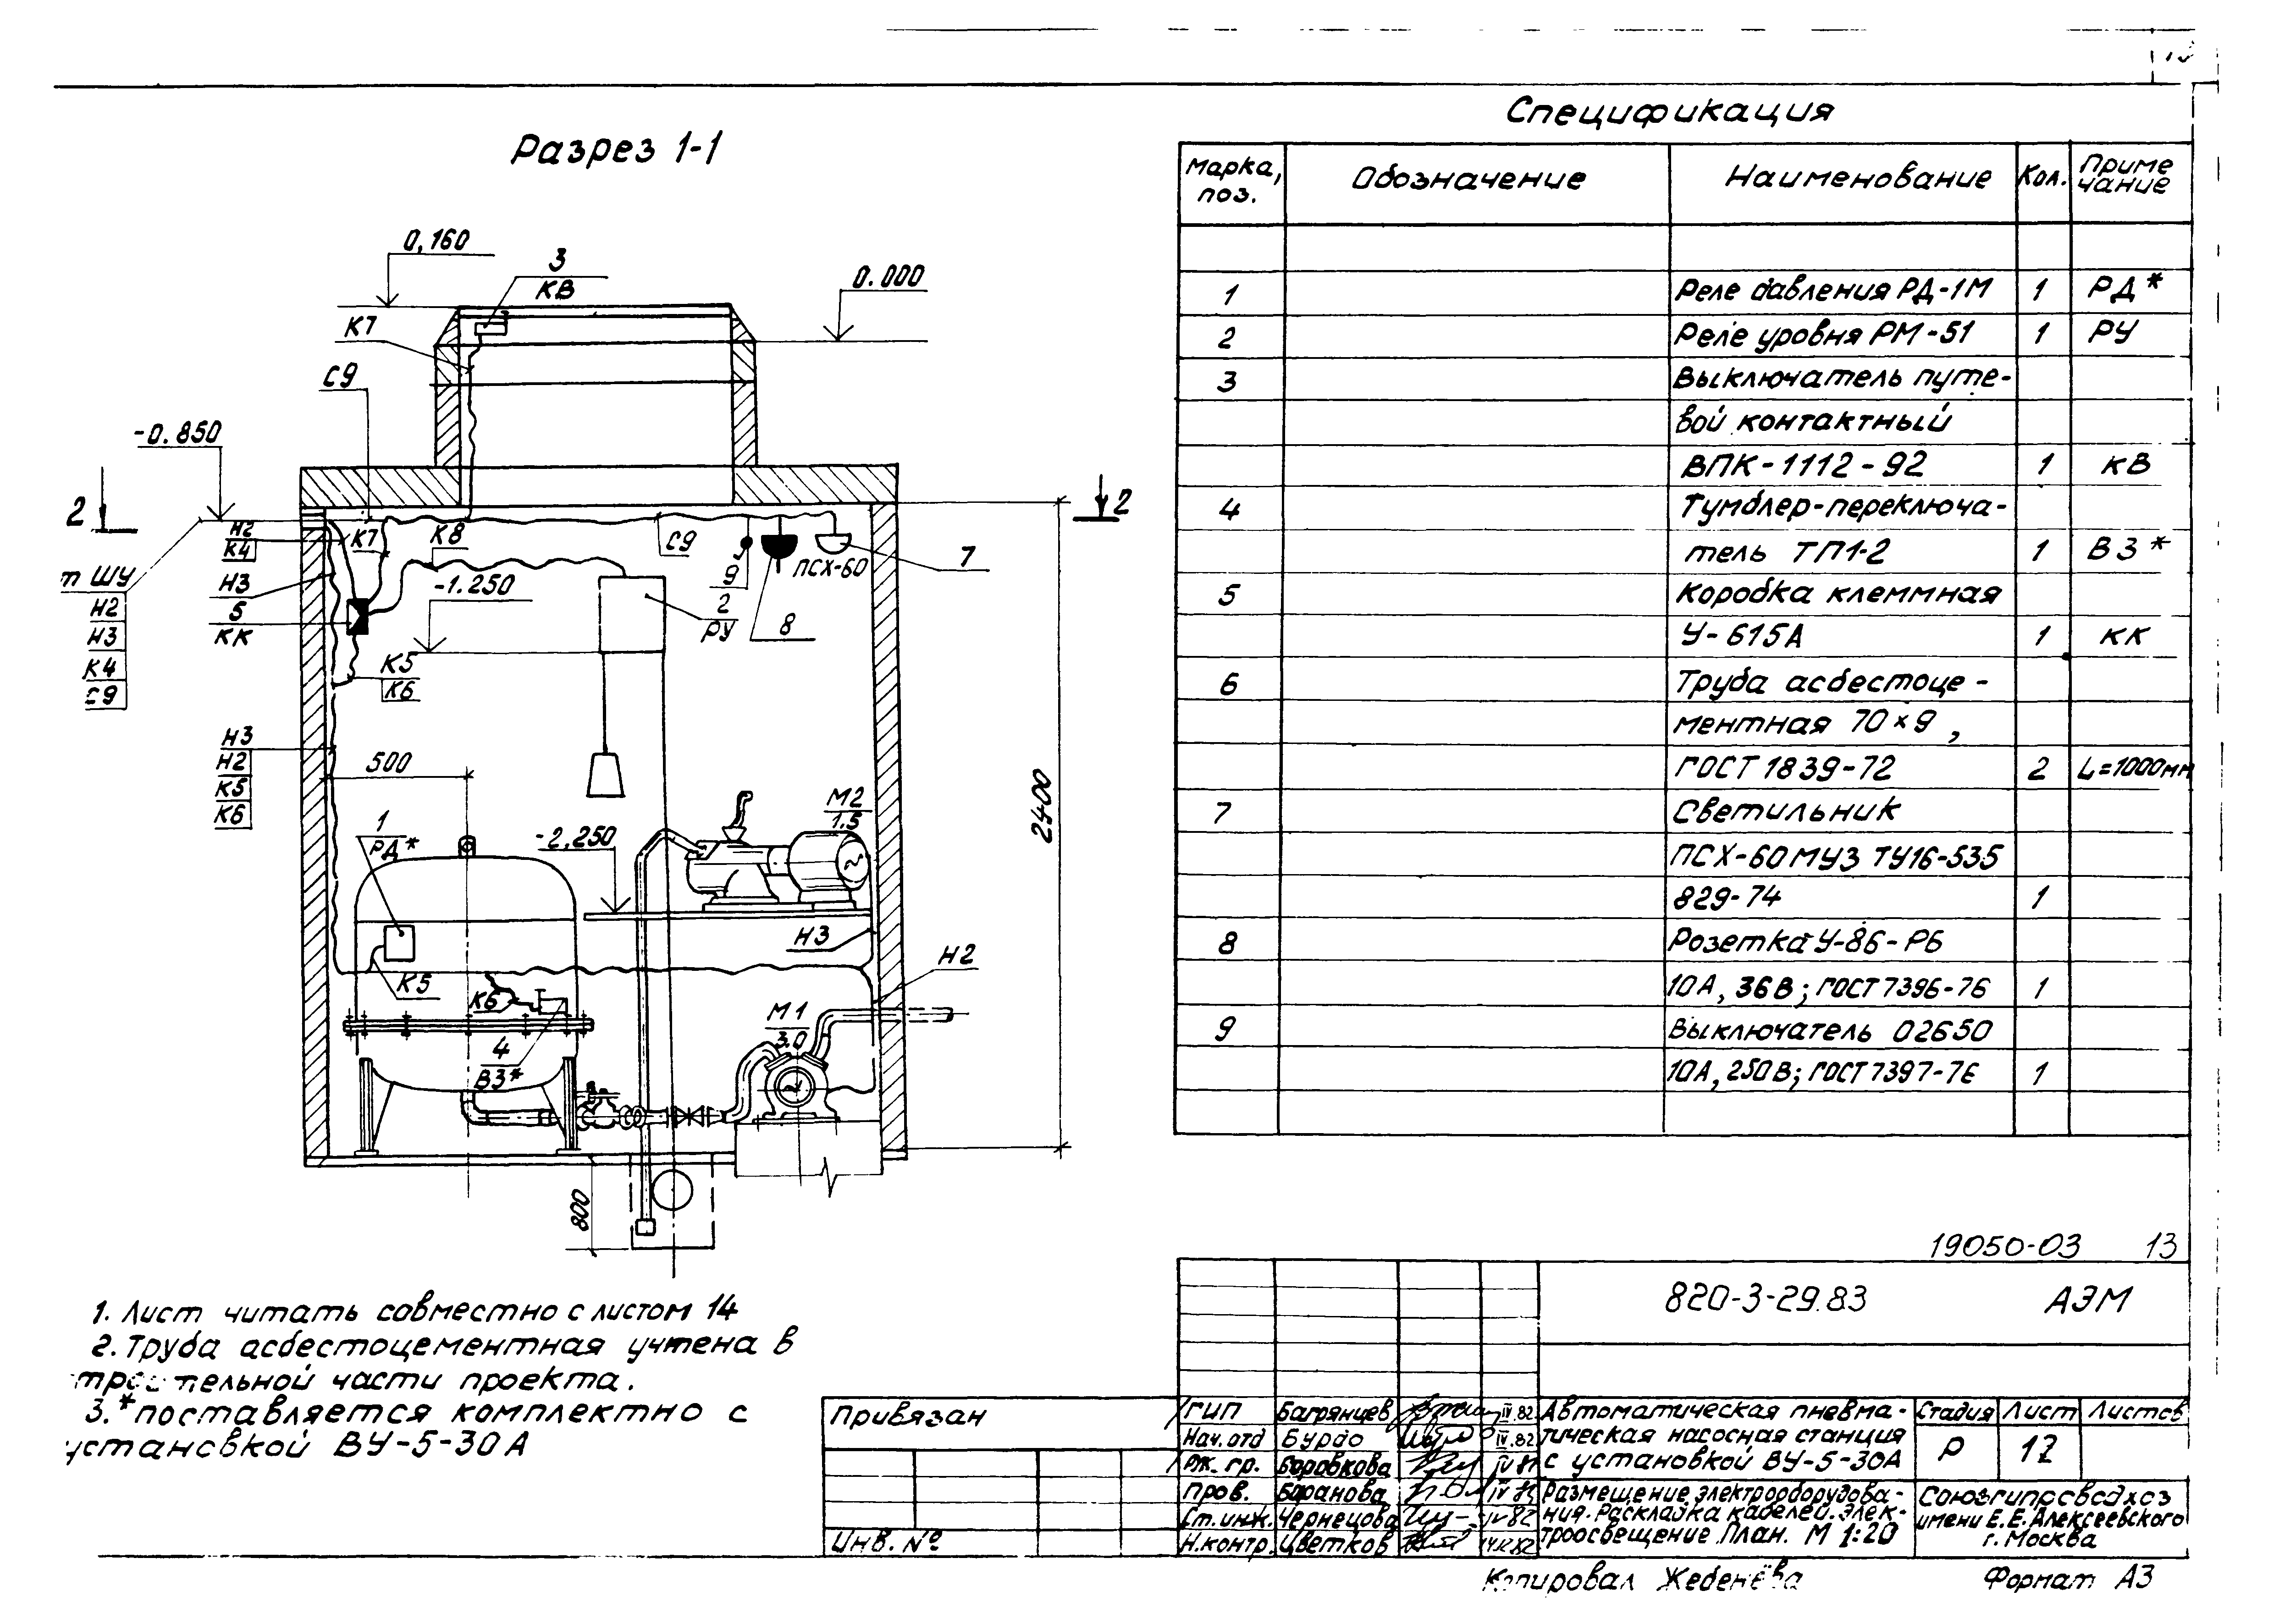 Разрез 1-1
0,160
3
КВ
0.000
К7
С9
-0.850
2
2
Н2
К4
К7
К8
С9
9
ПСХ-60
7
т ШУ
Н2
Н3
К4
С9
Н3
5
КК
-1.250
2
РУ
8
К5
К6
Н3
Н2
К5
К6
500
1
РД*
-2,250
М2
1.5
2400
Н3
Н2
К5
К6
4
ВЗ*
М1
3.0
800
Спецификация
Марка, поз. Обозначение Наименование Кол. Приме чание
1 Реле давления РД-1М 1 РД*
2 Реле уровня РМ-51 1 РУ
3 Выключатель путе-
вой контактный
ВПК-1112-92 1 КВ
4 Тумблер-переключа-
тель ТП1-2 1 ВЗ*
5 Коробка клеммная
У-615А 1 КК
6 Труба асбестоце-
ментная 70×9,
ГОСТ 1839-72 2 L=1000мм
7 Светильник
ПСХ-60МУ3 ТУ16-535
829-74 1
8 Розетка У-86-Р6
10А, 36В; ГОСТ 7396-76 1
9 Выключатель 02650
10А, 250В; ГОСТ 7397-76 1
1. Лист читать совместно с листом 14
2. Труба асбестоцементная учтена в
троительной части проекта.
3. *поставляется комплектно с
установкой ВУ-5-30А
19050-03 13
820-3-29.83 АЭМ
Привязан
Инв. №
ГИП Багрянцев IV.82
Нач. отд Бурдо IV.82
Рж. гр. Боровкова
Пров. Баранова
Ст. инж. Чернецова
Н.контр. Цветков
Автоматическая пневма-
тическая насосная станция
с установкой ВУ-5-30А
Стадия Лист Листов
Р 12
Размещение электрооборудова-
ния. Раскладка кабелей. Элек-
троосвещение. План. М 1:20
Союзгипроводхоз
имени Е.Е. Алексеевского
г. Москва
Копировал Жебенёва Формат А3